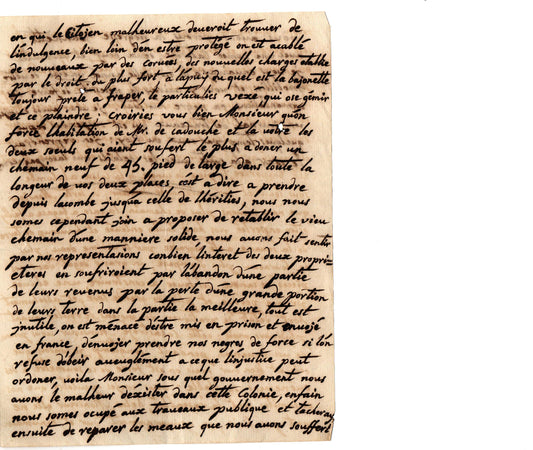 en qui le Citoien malheureux deveroit trouver de
lindulgence, bien loin den estre protégé on est acablé
de nouveaux par des corvees des nouvelles charges etablie
par le droit du plus fort à lapuy duquel est la bajonette
toujour prete a fraper, le particulies vexé qui ose gémir
et ce plaindre; croiries vous bien Monsieur quón
force lhabitation de Mr. de Cadouche et la votre les
deux soeuls qui aient soufert le plus a doner un
chemain neuf de 45. pied de large dans toute la
longeur de vos deux places, cést a dire a prendre
depuis lacombe jusqua celle de lhérities, nous nous
somes cependant join a proposer de retablir le vieu
chemain dúne manniere solide, nous avons fait sentir
par nos representations conbien linteret des deux propri=
eteres en soufriroient par lábandon dúne partie
de leurs revenus par la perte dúne grande portion
de leurs terre dans la partie la meilleure, tout est
jnutile, on est menacé déstre mis en prison et envojé
en france, dénvojer prendre nos negres de force si lón
refuse dóbeir aveuglement a ceque linjustice peut
ordoner, voila Monsieur sous quel gouvernement nous
avons le malheur dexister dans cette Colonie, enfain
nous somes ocupé aux traveaux publique et tacheray
ensuite de reparer les meaux que nous avons souffert